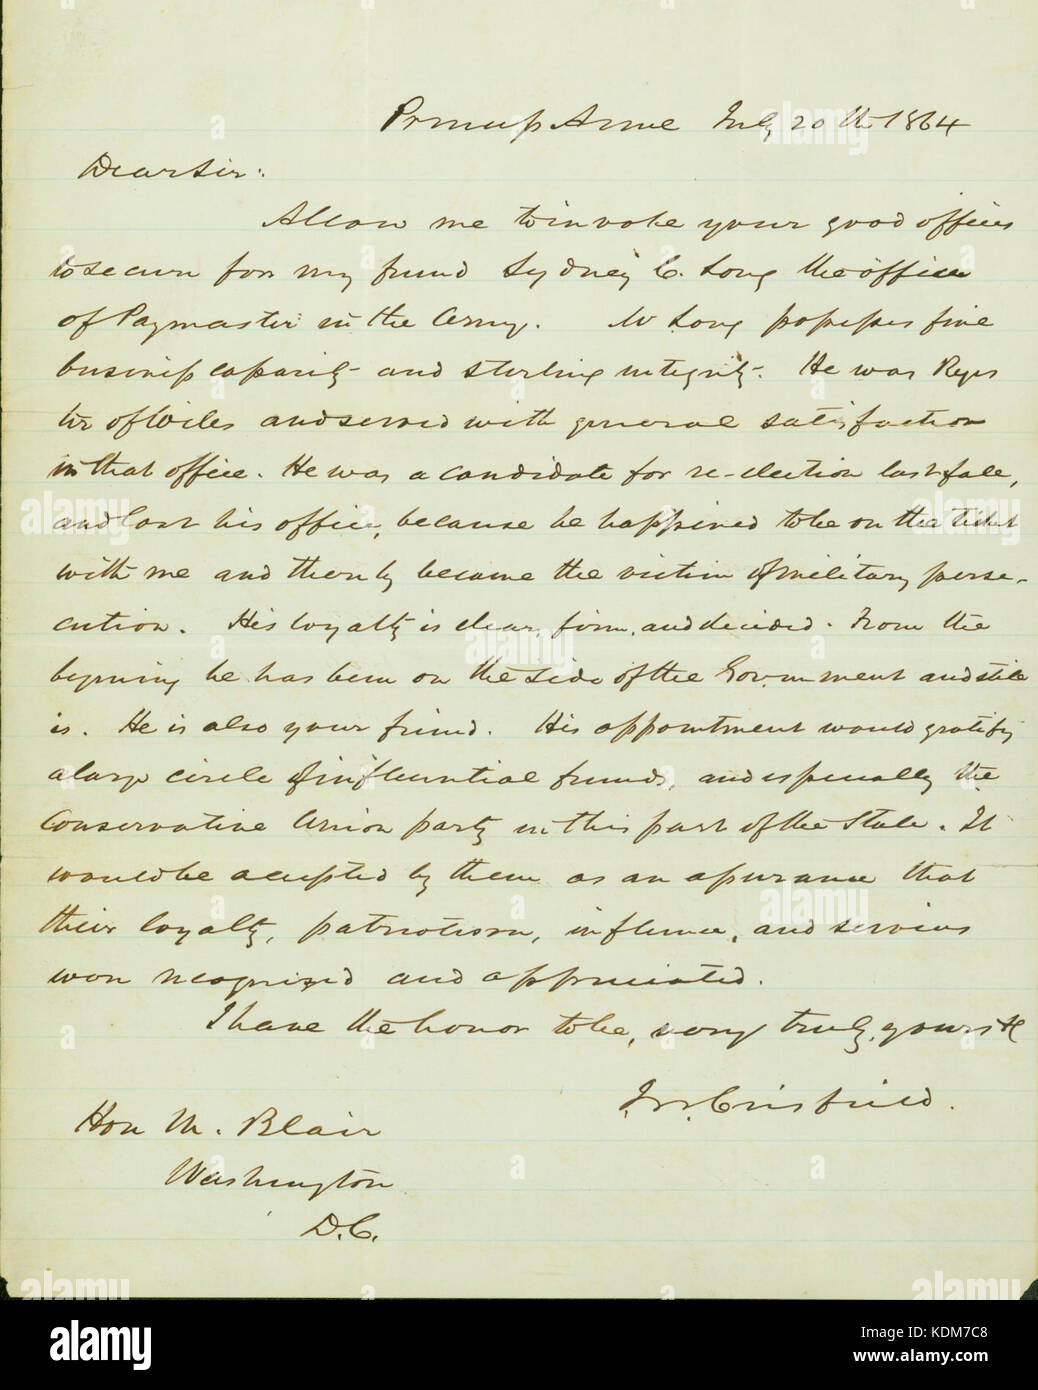 Princess Anne July 20th 1864
Dear Sir:
Allow me to invoke your good offices
to secure for my friend Sydney C. Long the office
of Paymaster in the Army. Mr Long possesses fine
business capacity and sterling integrity. He was Regis
ter of Wills and served with general satisfaction
in that office. He was a candidate for re-election last fall,
and lost his office, because he happened to be on the ticket
with me and thereby became the victim of military perse-
cution. His loyalty is clear, firm, and decided. From the
beginning he has been on the side of the Government and still
is. He is also your friend. His appointment would gratify
a large circle of influential friends, and especially the
Conservative Union party in this part of the State. It
would be accepted by them as an assurance that
their loyalty, patriotism, influence, and services
were recognized and appreciated.
I have the honor to be, very truly, yours &c
J. W. Crisfield.
Hon M. Blair
Washington
D.C.
alamy
Image ID: KDM7C8
www.alamy.com